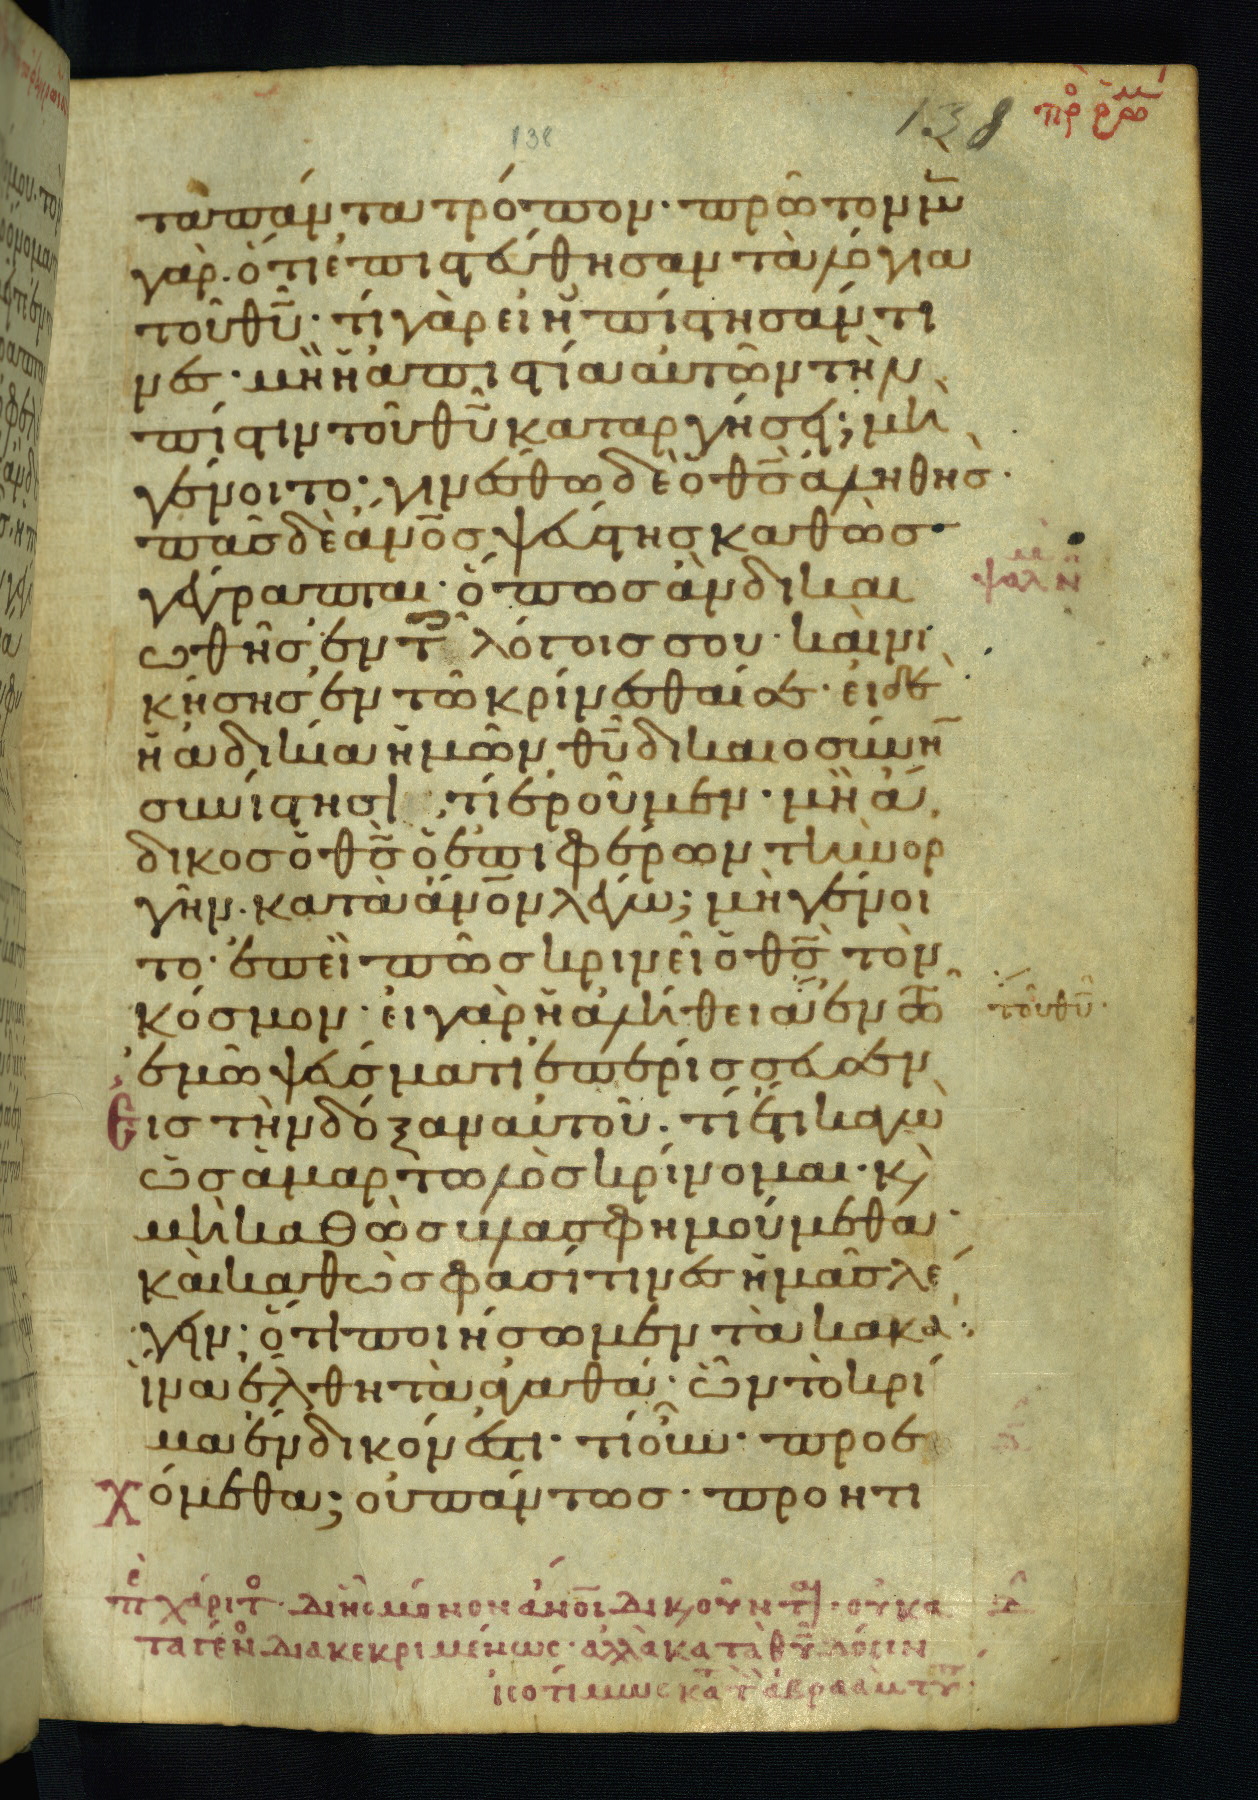 138
πρ ρωμ
138
τα πάντα τρόπον· πρῶτον μὲν
γὰρ· ὅτι ἐπιστεύθησαν τὰ λόγια
τοῦ θῦ· τί γὰρ εἰ ἠπίστησάν τι
νες· μὴ ἡ ἀπιστία αυτῶν τὴν
πίστιν τοῦ θῦ καταργήσει; μὴ
γένοιτο· γινέσθω δὲ ὁ θς ἀληθησ·
πᾶσ δὲ ἄνος ψεύστης καθὼσ
γέγραπται· ὅπωσ ἂν δικαι
ψαλμ ν
ωθῆσ ἐν τ λόγοισ σου· καὶ νι
κήσησ ἐν τῶ κρίνεσθαί σε· εἰ δὲ
ἡ ἀδικία ἡμῶν θῦ δικαιοσύνη
συνίστησι τί ἐροῦμεν· μὴ ἄ
δικοσ ὁ θς ὁ ἐπιφέρων τὴν ορ
γήν· κατὰ ἄνον λέγω; μὴ γένοι
το· ἐπεὶ πῶσ κρινεῖ ὁ θς τὸν
κόσμον· εἰ γὰρ ἡ ἀλήθεια ἐν τῶ
τοῦ θῦ·
ἐμῶ ψεύσματι ἐπερίσσευσεν
εἰσ τὴν δόξαν αυτοῦ· τί ἔτι καγὼ
ὡσ ἁμαρτωλὸσ κρίνομαι· κ
μὴ καθὼσ βλασφημούμεθα·
καὶ καθώσ φασί τινεσ ἡμᾶσ λέ
γειν· ὅτι ποιήσωμεν τὰ κακά·
ἵνα ἔλθη τὰ αγαθά· ὧν τὸ κρί
μα ἔνδικόν ἐστι· τί οὖν· προε
χόμεθα; ου πάντωσ· προητι
π χάριτο· δι ἧς μόνον ἄνοι δικαιοῦντ· οὐ κα
τα γένο διακεκριμένως· αλλὰ κατὰ θῦ δόσιν
ἰσοτίμως κα τ ἀβραὰμ τυπ·